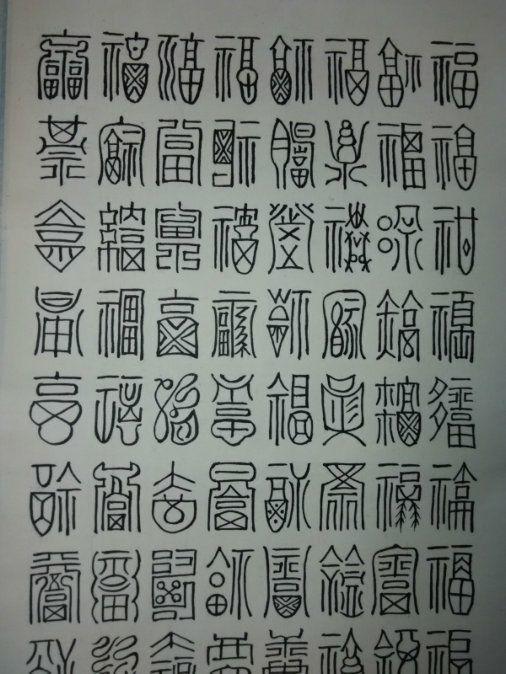 福福福福福福福福
福福福福福福福福
福福福福福福福福
福福福福福福福福
福福福福福福福福
福福福福福福福福
福福福福福福福福